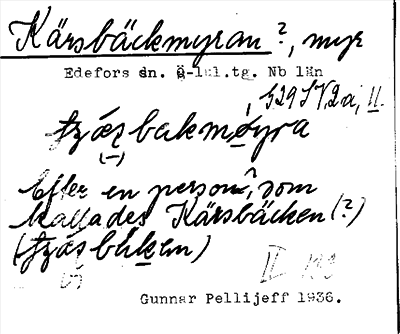 Kärsbäckmyran ?, myr
Edefors sn. Ö-lul.tg. Nb län
, G29 SV, 2 a, II.
bakmøyra
Efter en person?, som
kallades Kärsbäcken (?)
II
Gunnar Pellijeff 1936.